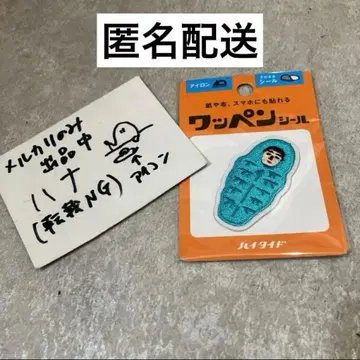 匿名配送
メルカリのみ
出品中
ハナ
(転載NG)
アイコン
アイロン
シール
紙や布、スマホにも貼れる
ワッペン
シール
ハイタイド